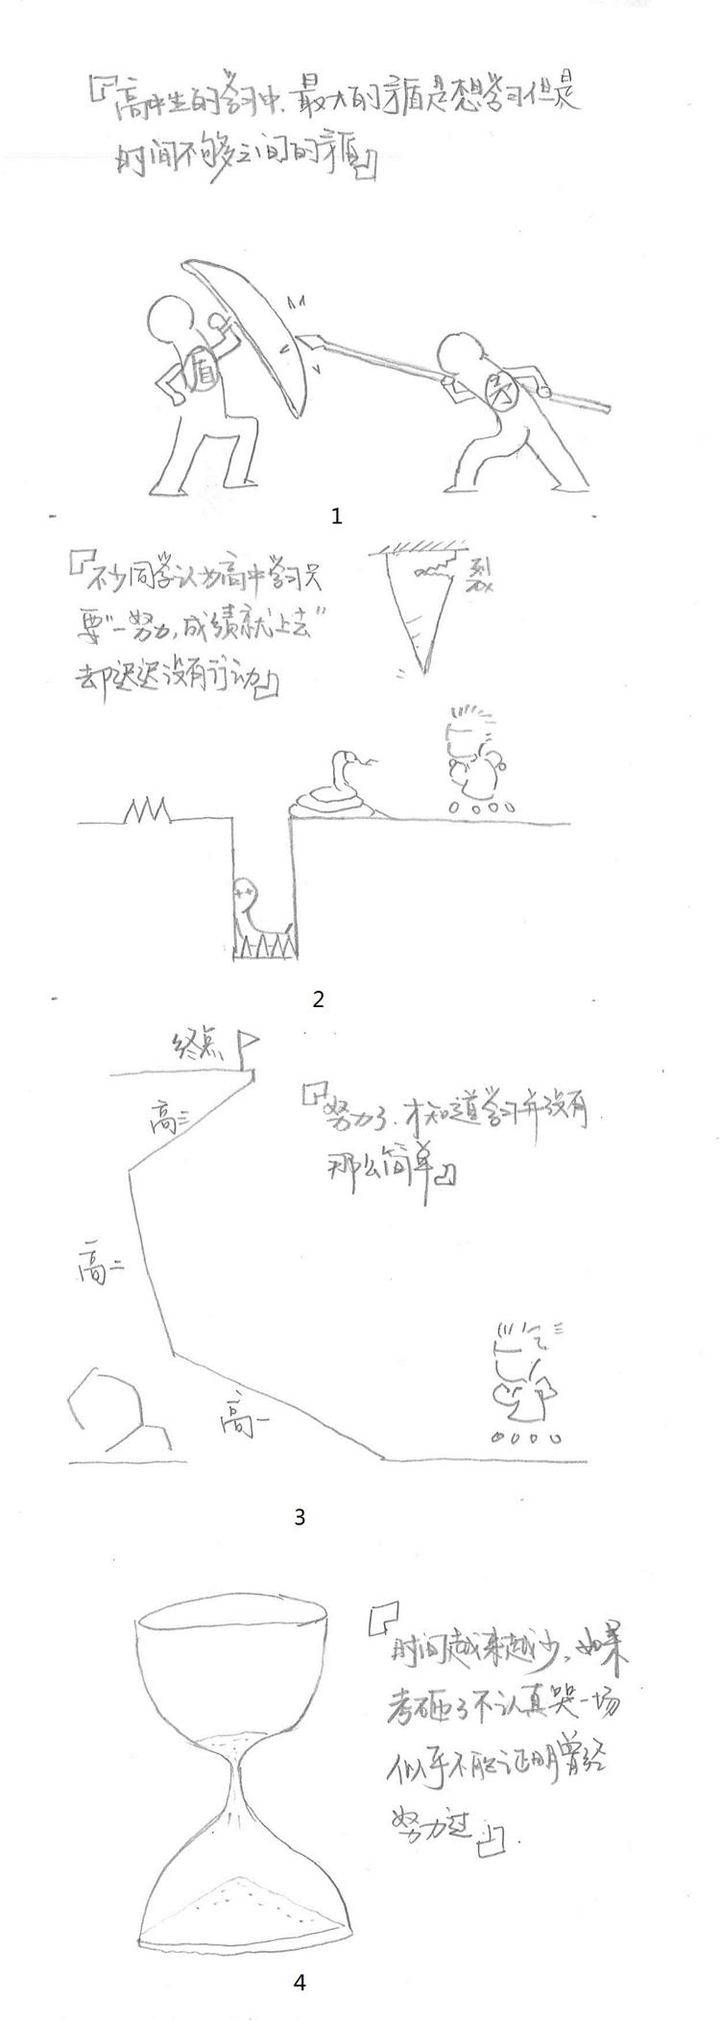 『高中生的学习中,最大的矛盾是想学习但是
时间不够多之间的矛盾』
盾
矛
1
『不少同学认为高中学习只
要"一努力,成绩就上去"
却迟迟没有行动』
裂
2
终点
高三
『努力了,才知道学习并没有
那么简单』
高二
高一
3
『
时间越来越少,如果
考砸了不认真哭一场
似乎不能证明曾经
努力过』.
4